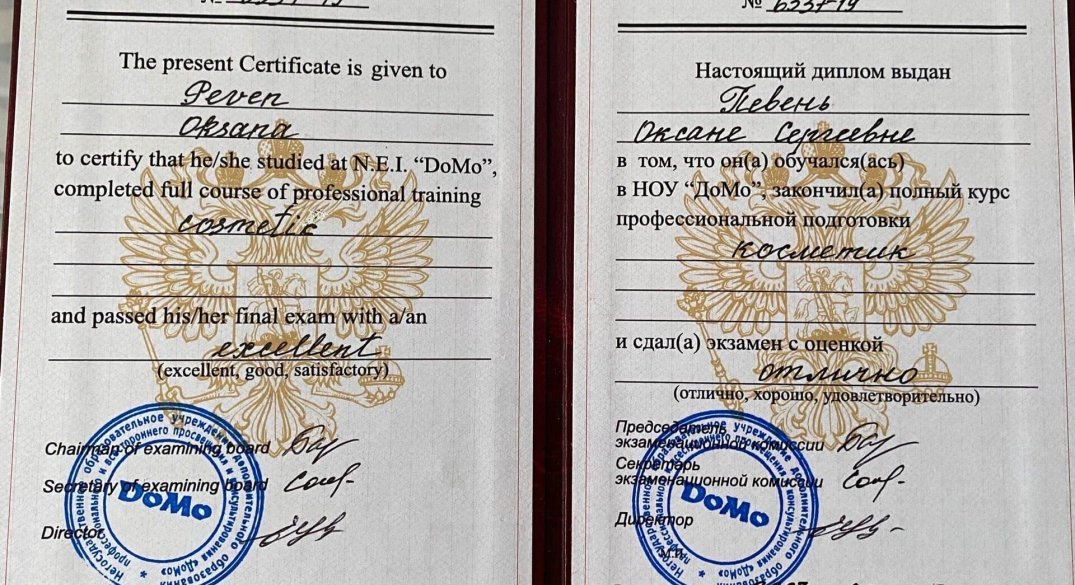 The present Certificate is given to
Peven
Oksana
to certify that he/she studied at N.E.I. “DoMo”,
completed full course of professional training
cosmetic
and passed his/her final exam with a/an
excellent
(excellent, good, satisfactory)
Chairman of examining board
Secretary of examining board
Director
DoMo
№ 6337-19
Настоящий диплом выдан
Певень
Оксане Сергеевне
в том, что он(а) обучался(ась)
в НОУ “ДоМо”, закончил(а) полный курс
профессиональной подготовки
косметик
и сдал(а) экзамен с оценкой
отлично
(отлично, хорошо, удовлетворительно)
Председатель
экзаменационной комиссии
Секретарь
экзаменационной комиссии
Директор
М.П.
DoMo